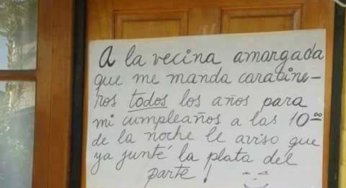 A la vecina amargada
que me manda carabine-
ros todos los años para
mi cumpleaños a las 10:00
de la noche le aviso que
ya junté la plata del
parte!